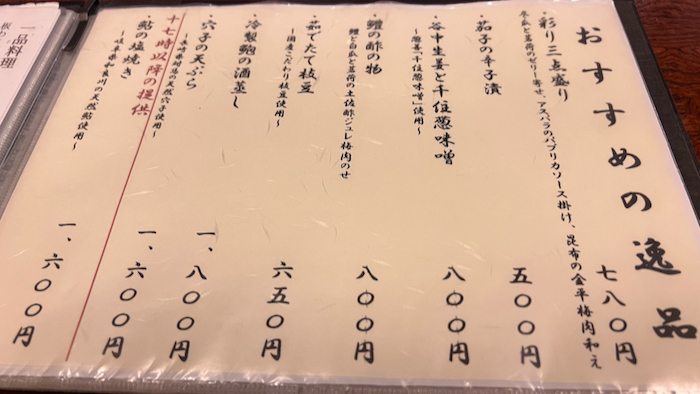 おすすめの逸品
・彩り三点盛り
冬瓜と茗荷のゼリー寄せ、アスパラのパプリカソース掛け、昆布の金平梅肉和え
七八〇円
・茄子の辛子漬
五〇〇円
・谷中生姜と千住葱味噌
～葱善「千住葱味噌」使用～
八〇〇円
・鱧の酢の物
鱧と白瓜と茗荷の土佐酢ジュレ梅肉のせ
八〇〇円
・茹でたて枝豆
～国産こだわり枝豆使用～
六五〇円
・冷製鮑の酒蒸し
一、八〇〇円
・穴子の天ぷら
天然穴子使用～
一、六〇〇円
十七時以降の提供
・鮎の塩焼き
の天然鮎使用～
一、六〇〇円
一品料理